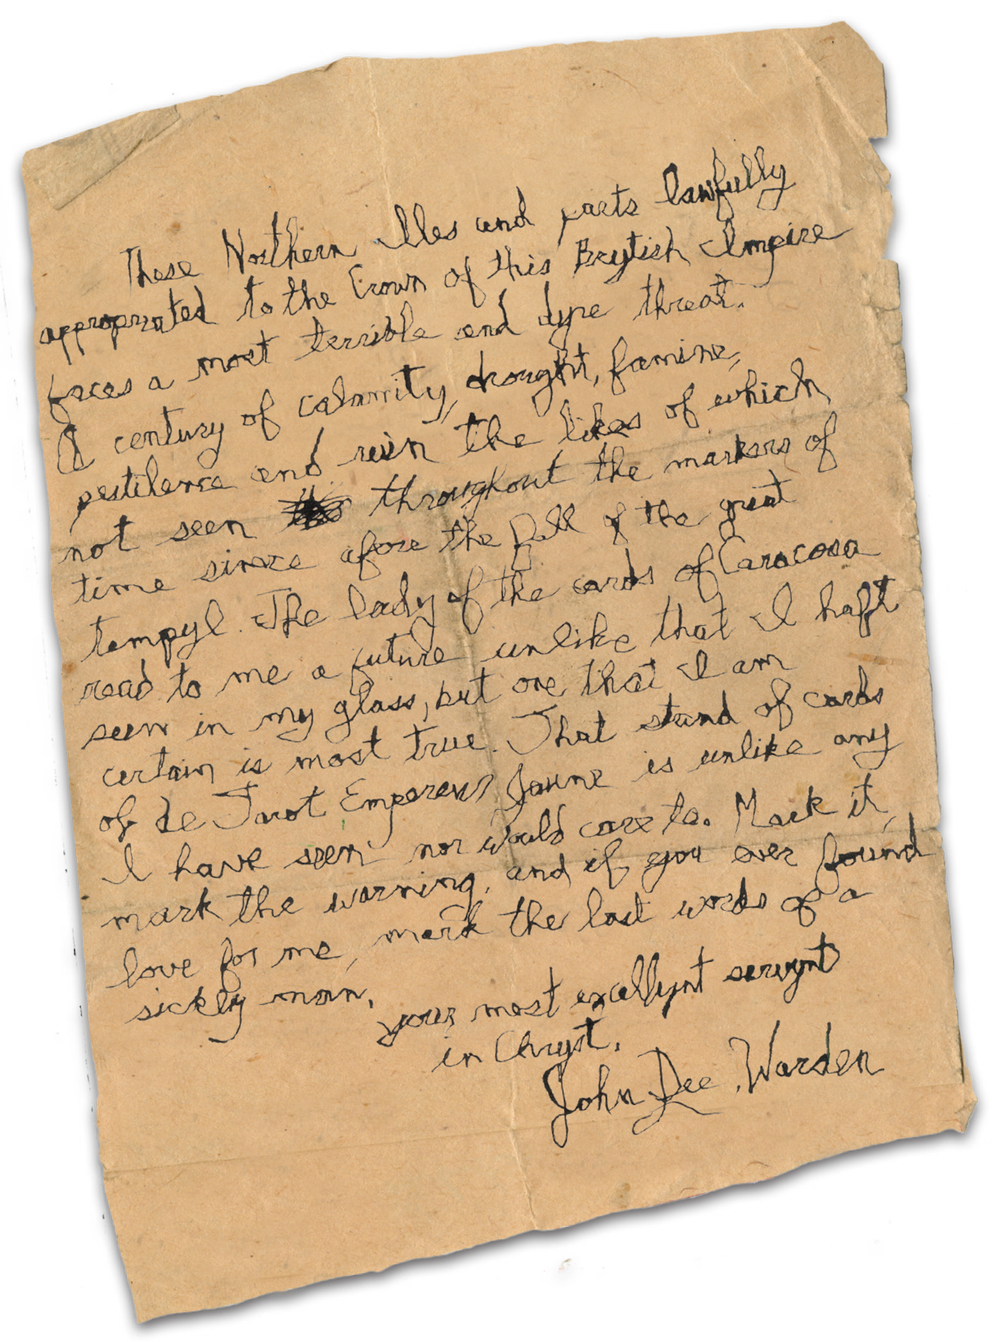 These Northern Iles and parts lawfully
appropriated to the Crown of this Brytish Impire
faces a most terrible and dyre threat.
A century of calamity, drought, famine,
pestilence and ruin the likes of which
not seen throughout the markers of
time since afore the fall of the great
tempyl. The lady of the cards of Caracosa
read to me a future unlike that I haft
seen in my glass, but one that I am
certain is most true. That stand of cards
of de Tarot Empereur Jaune is unlike any
I have seen nor would care to. Mark it,
mark the warning, and if you ever found
love for me, mark the last words of a
sickly man.
your most excellynt servynt
in Chryst,
John Dee, Warden